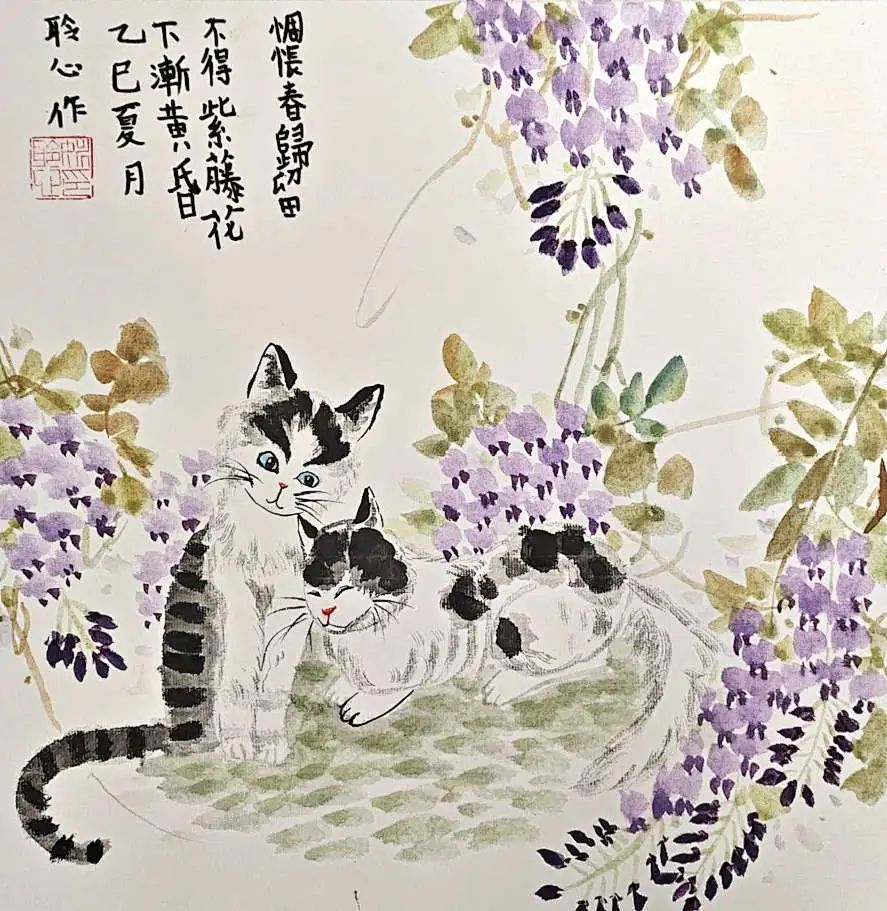 惆悵春歸留
不得紫藤花
下漸黄昏
乙巳夏月
聆心作